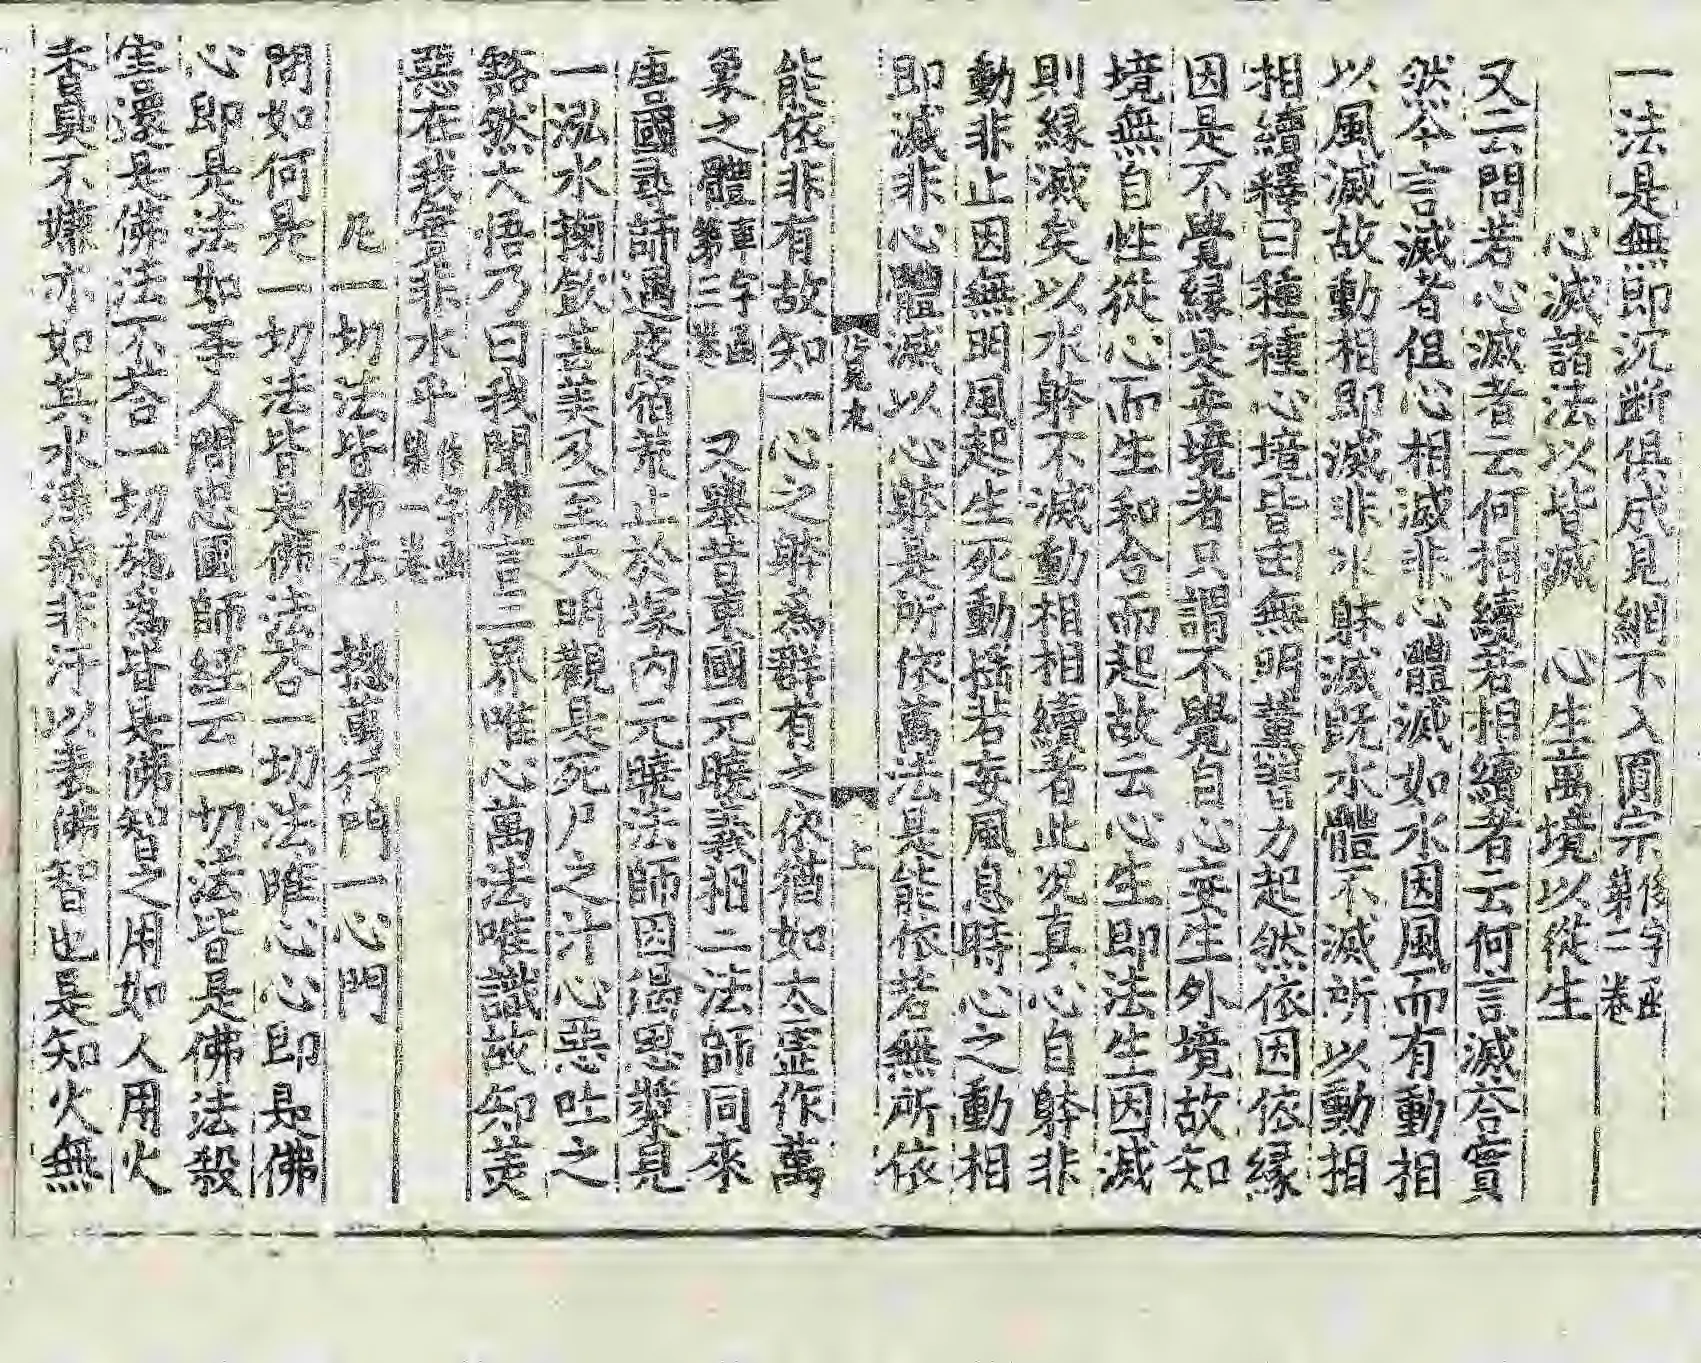 一法是無即沉斷俱成見網不入圓宗第二卷
心滅諸法以皆滅　心生萬境以從生
又云問若心滅者云何相續若相續者云何言滅答實
然今言滅者但心相滅非心體滅如水因風而有動相
以風滅故動相即滅非水躰滅既水體不滅所以動相
相續釋曰種種心境皆由無明熏習力起然依因依緣
因是不覺緣是妄境者只謂不覺自心変生外境故知
境無自性從心而生和合而起故云心生即法生因滅
則緣滅矣以水躰不滅動相相續者此况真心自躰非
動非止因無明風起生死動搖若妄風息時心之動相
即滅非心體滅以心躰是所依萬法是能依若無所依
上
能依非有故知一心之躰為群有之依猶如太虛作萬
象之體第三卷　又舉昔東國元曉義相二法師同來
唐國尋師遇夜宿荒止於塚內元曉法師因渴思漿見
一泓水掬飲甚美及至天明觀是死尸之汁心惡吐之
豁然大悟乃曰我聞佛言三界唯心萬法唯識故知美
惡在我實非水乎
凡一切法皆佛法　揔萬行門一心門
問如何是一切法皆是佛法答一切法唯心心即是佛
心即是法如李人問忠國師経云一切法皆是佛法殺
害還是佛法不答一切施為皆是佛智之用如人用火
香臭不嫌亦如其水淨穢非汙以表佛智也是知火無